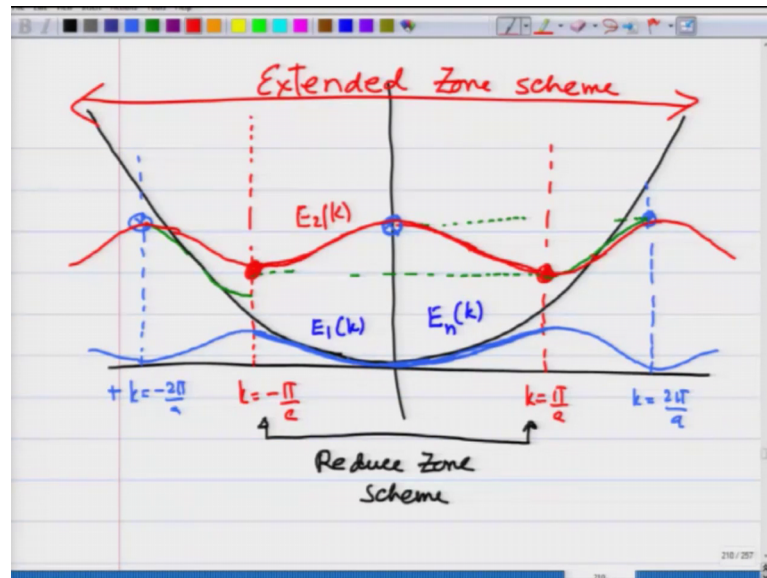 Extended Zone scheme
E₂(k)
E₁(k)
Eₙ(k)
+ k = -2π/a
k = -π/a
k = π/a
k = 2π/a
Reduce Zone
Scheme
210 / 257